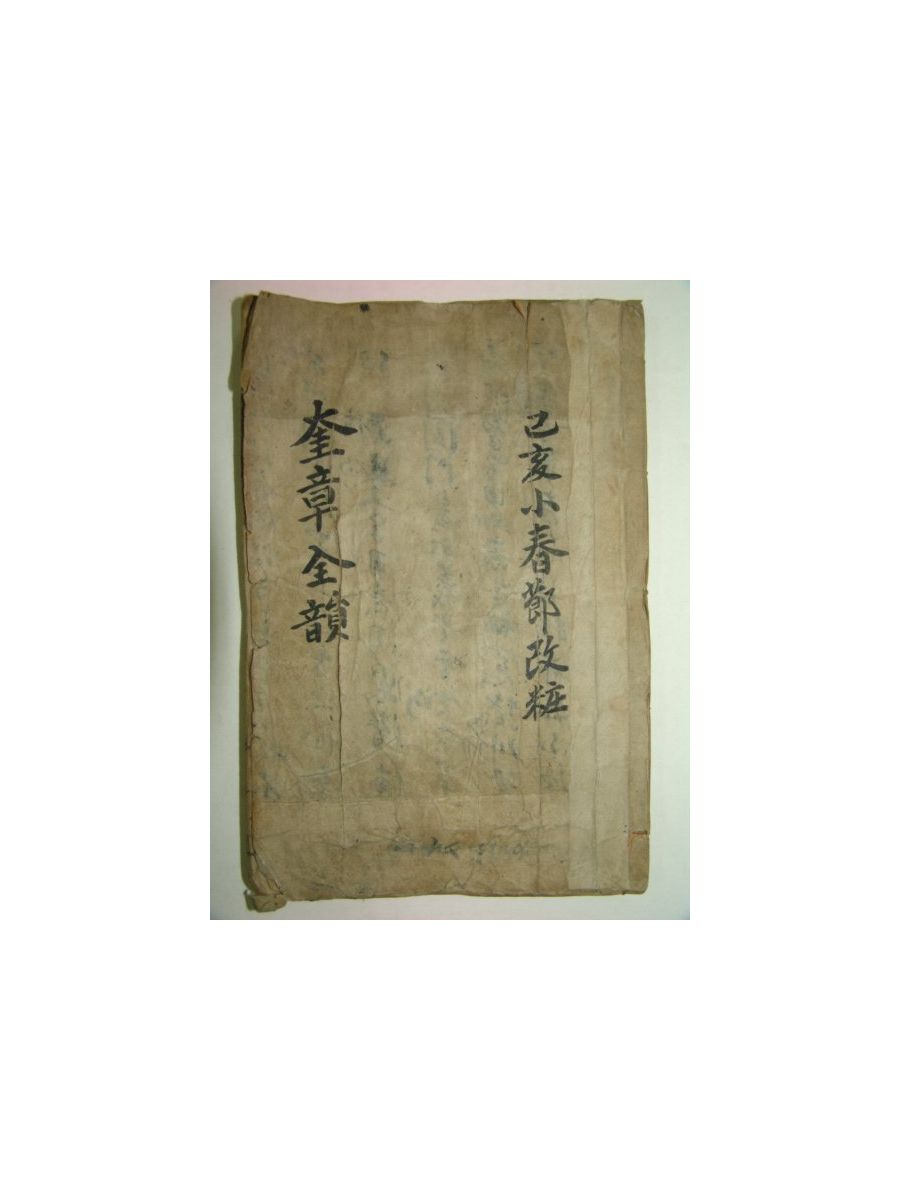 己亥小春節改粧
奎章全韻